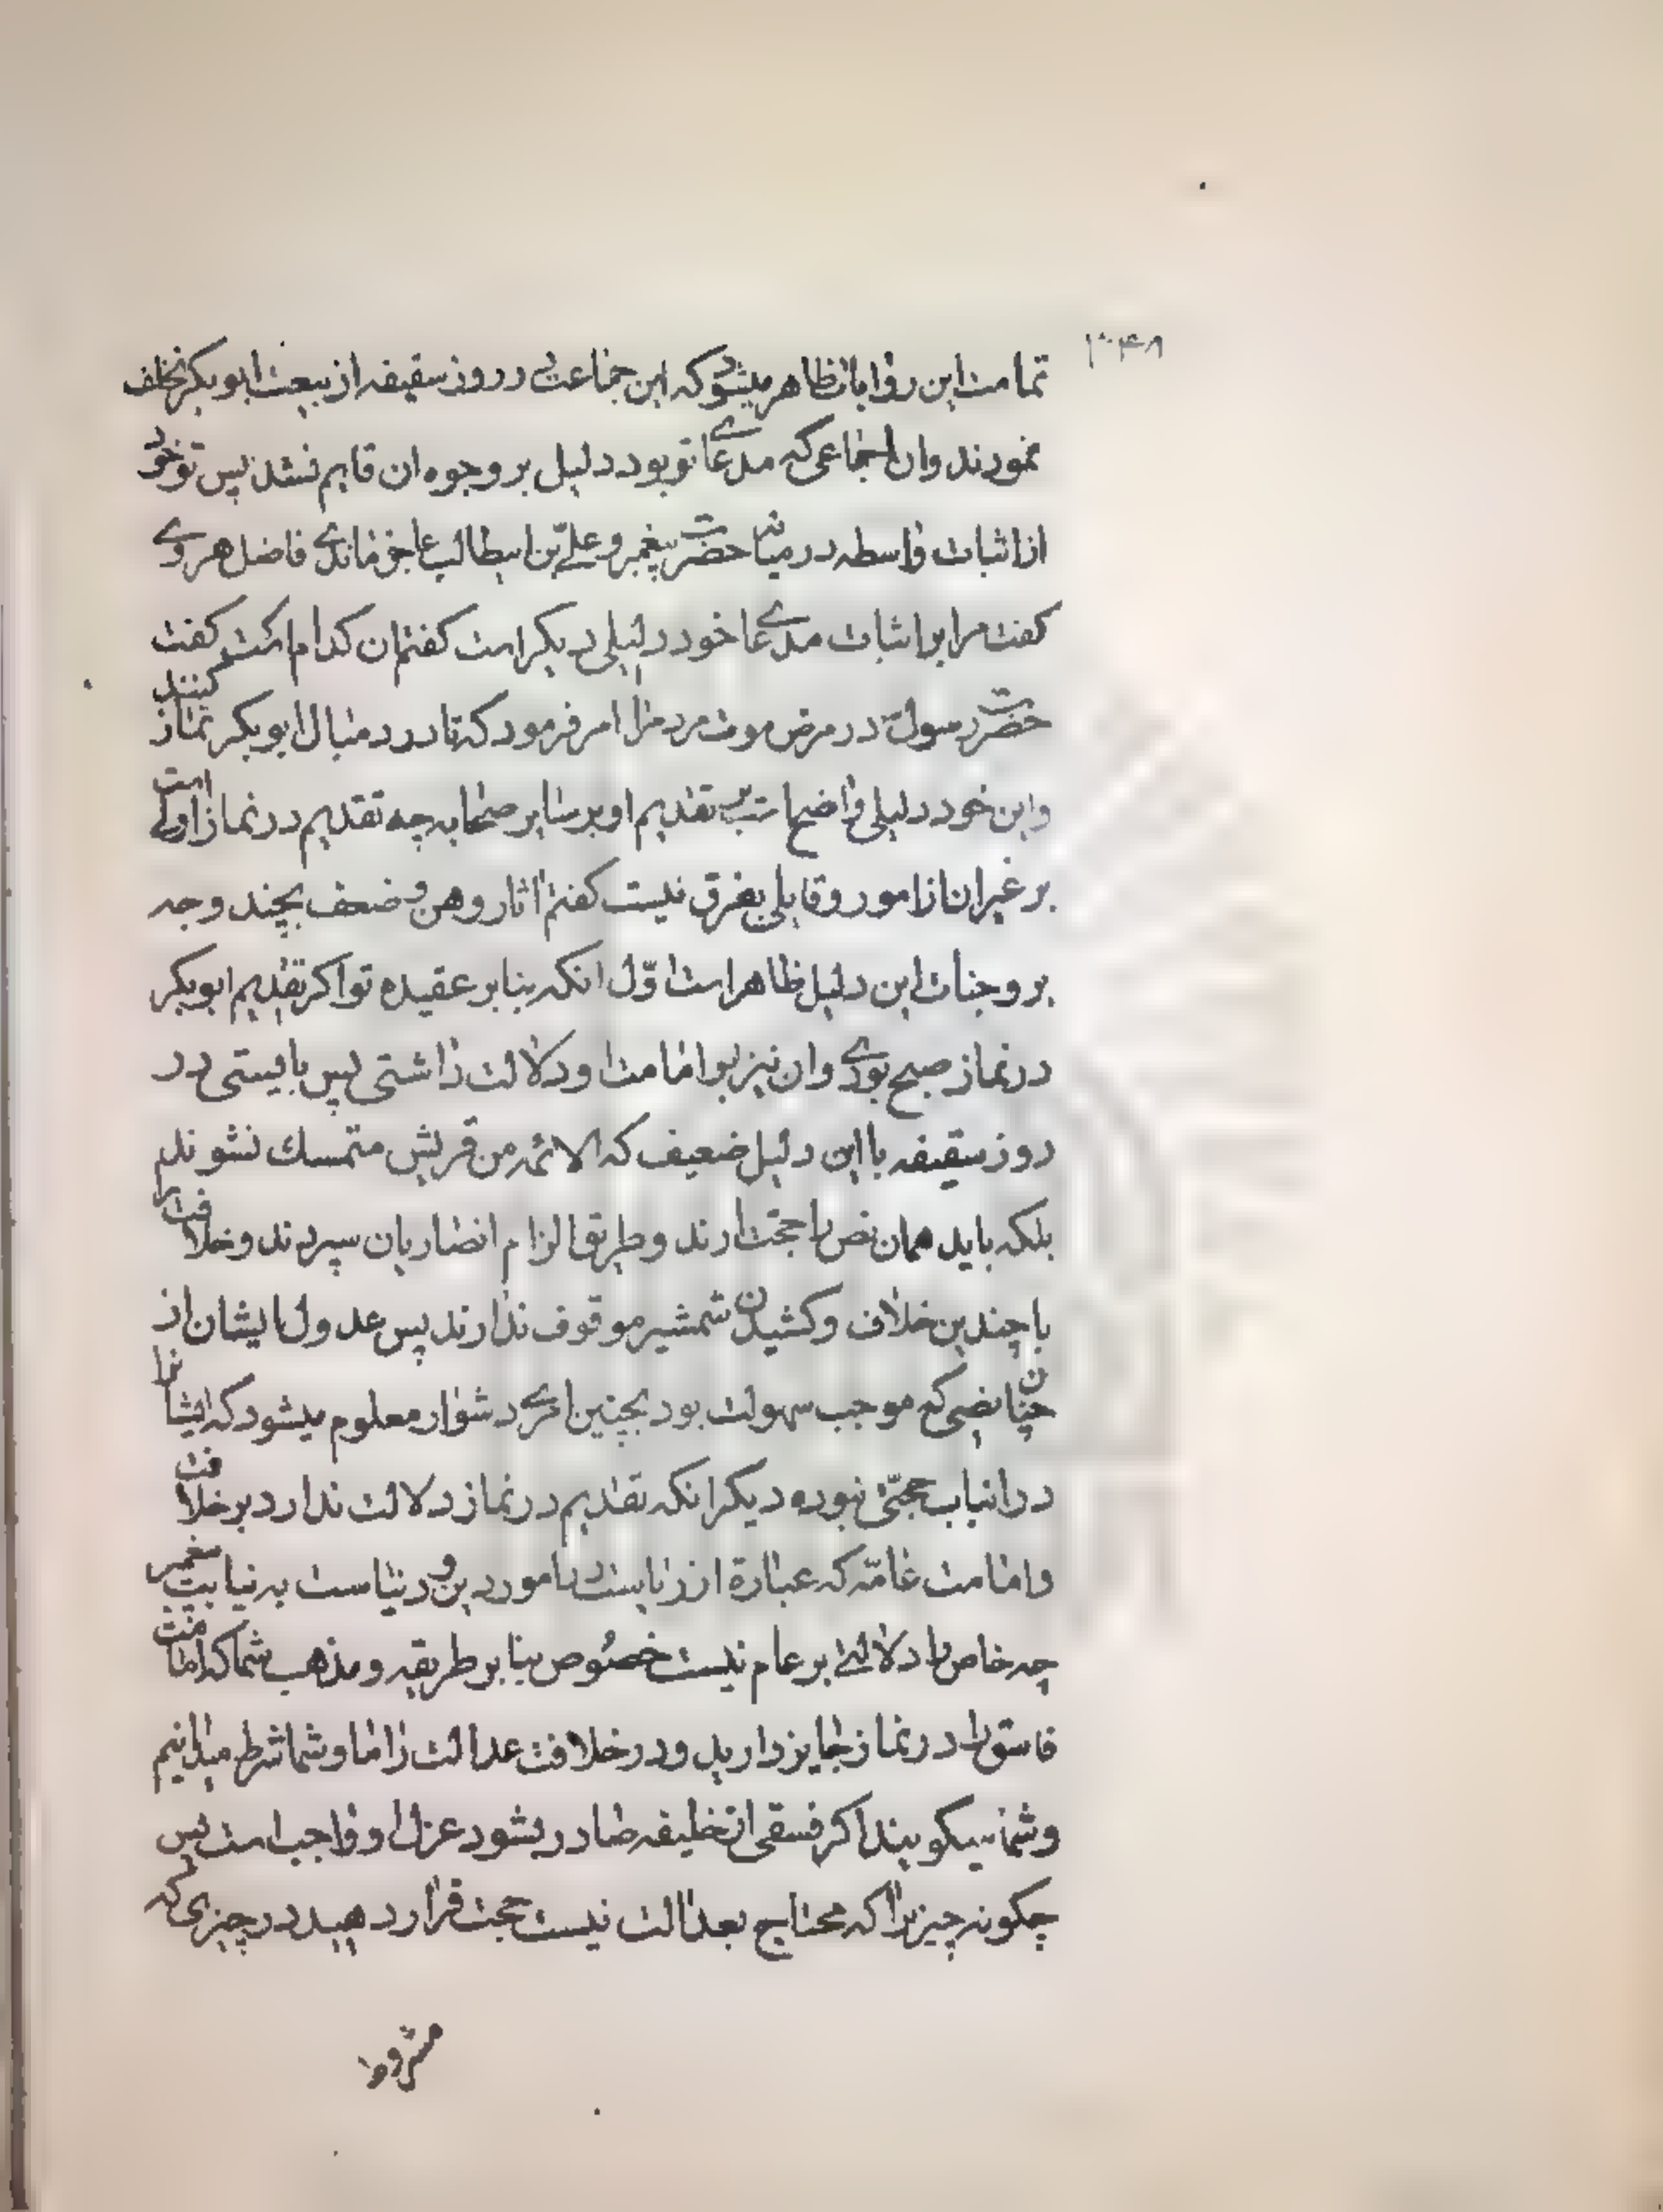 ۱۳۴۸
تمامت این روایات ظاهر میشود که این جماعت در روز سقیفه از بیعت ابوبکر تخلف
نمودند و ان اجماعی که مدعای تو بود دلیل بر وجوه ان قایم نشد پس تو خود
از اثبات واسطه در میان حضرت پیغمبر و علی بن ابیطالب عاجز ماندی فاضل هروی
کفت مرا بر اثبات مدعای خود دلیلی دیکر است کفتم ان کدام است کفت
حضرت رسول در مرض موت مردمرا امر فرمود که تا در دمبال ابوبکر نماز کنند
و این خود دلیلی واضح است بر تقدیم او بر سایر صحابه چه تقدیم در نماز اولی است
بر غیر ان از امور و قایلی بفرق نیست کفتم اثار وهن و ضعف بچند وجه
بر وجنات این دلیل ظاهر است اوّل انکه بنا بر عقیده تو اکر تقدیم ابوبکر
در نماز صبح بودی و ان نیز بر امامت او دلالت داشتی پس بایستی در
روز سقیفه با این دلیل ضعیف که الائمه من قریش متمسك نشوند
بلکه باید همان نص را حجت ارند و طریق الزام انصار بان سپردند و خلافت را
با چندین خلاف و کشیدن شمشیر موقوف ندارند پس عدول ایشان از
چنان نصی که موجب سهولت بود بچنین امری دشوار معلوم میشود که ایشانرا
در انباب حجتی نبوده دیکر انکه تقدیم در نماز دلالت ندارد بر خلافت
و امامت عامّه که عبارة از ریاست در امور دین و دنیاست به نیابت پیغمبر
چه خاص را دلالتی بر عام نیست خصوص بنا بر طریقه و مذهب شما که امامت
فاسق را در نماز جایز دارید و در خلافت عدالت را ما و شما شرط میدانیم
و شما میکویید اکر فسقی از خلیفه صادر بشود عزل او واجب است پس
چکونه چیزیرا که محتاج بعدالت نیست حجت قرار دهید در چیزی که
مشروط